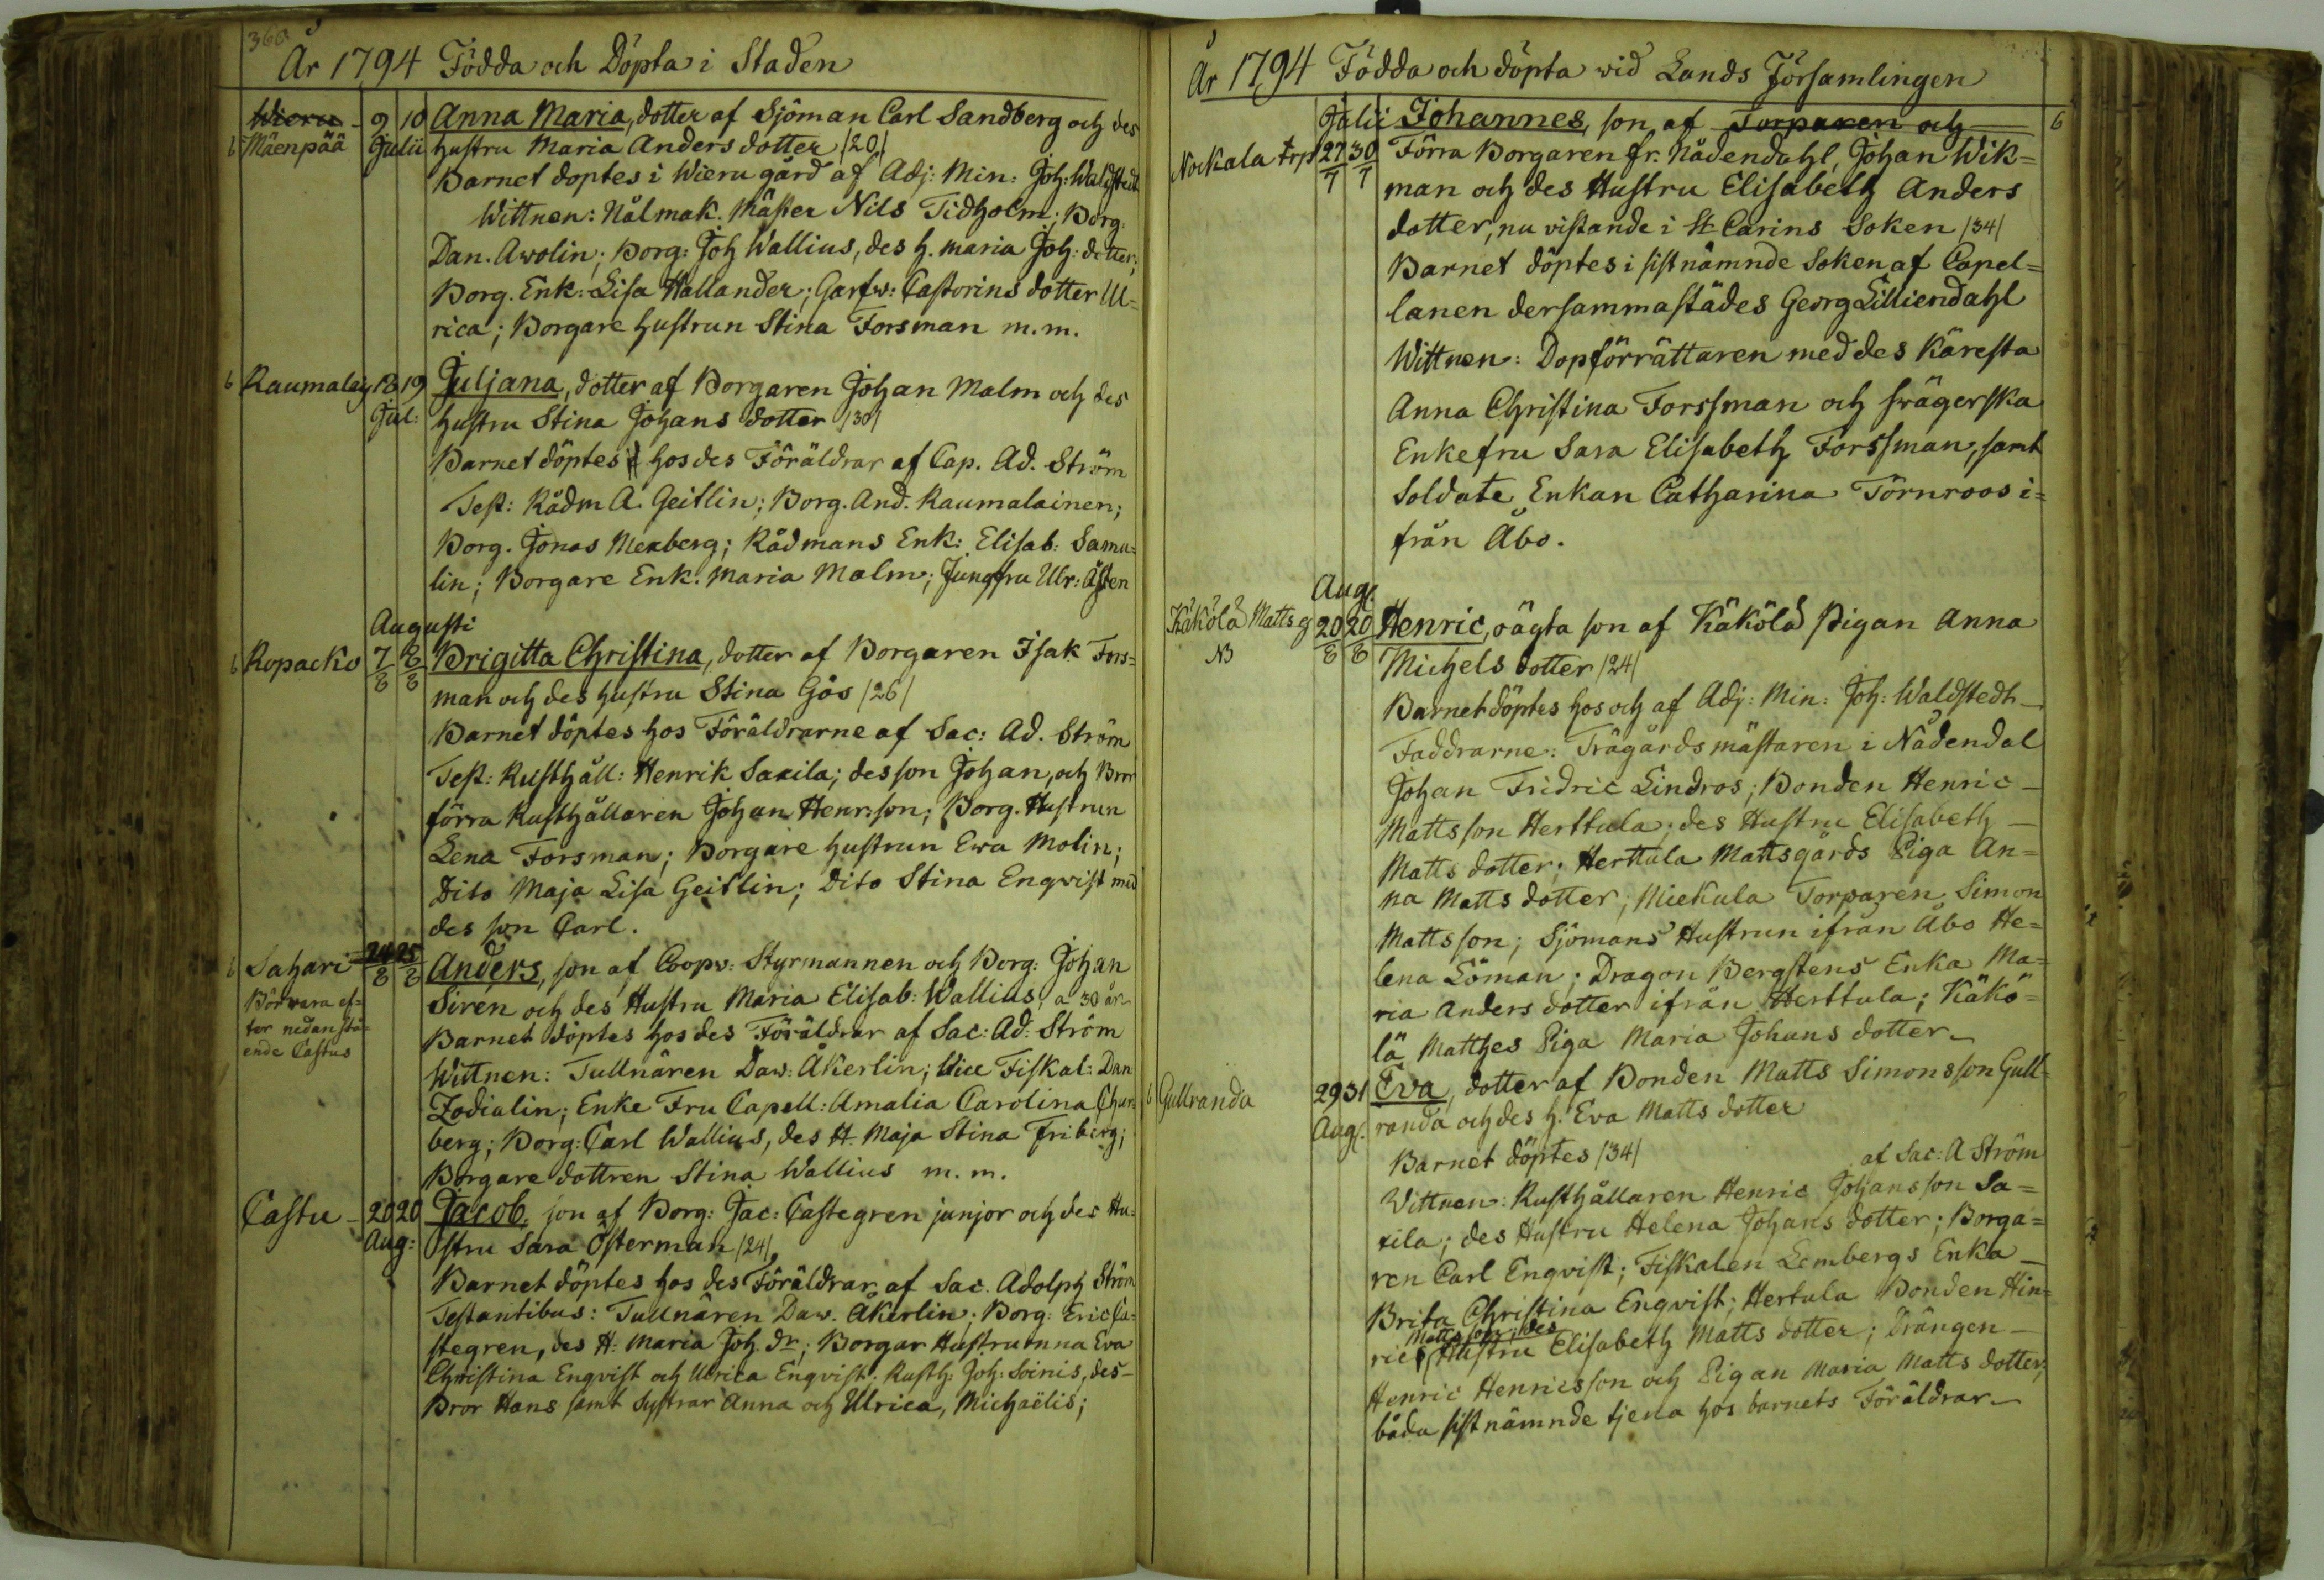 360
År 1794 Födda och Döpta i Staden
Wieru - 9 10 Anna Maria, dotter af Sjöman Carl Sandberg och des
6 Mäenpää Julii hustru Maria Anders dotter /20/
Barnet döptes i Wieru gård af Adj: Min: Joh: Waldstedt
Wittnen: Nålmak. Mäster Nils Tidholm; Borg:
Dan. Awolin; Borg: Joh Wallius, des h. Maria Joh: dotter;
Borg. Enk: Lisa Hallander; Garfw: Castorins dotter Ul=
rica; Borgare hustrun Stina Forsman m.m.
6 Raumalay 18 19 Juljana, dotter af Borgaren Johan Malm och des
Jul: hustru Stina Johans dotter /30/
Barnet döptes hos des Föräldrar af Cap. Ad. Ström
Test: Rådm A. Geitlin; Borg. And. Raumalainen;
Borg. Jonas Mexberg; Rådmans Enk: Elisab: Samu=
lin; Borgare Enk. Maria Malm; Jungfru Ulr:
Augusti
6 Ropacko 7/8 8/8 Brigitta Christina, dotter af Borgaren Isak Fors=
man och des hustru Stina Gös /26/
Barnet döptes hos Föräldrarne af Sac: Ad. Ström
Test: Rusthåll: Henrik Saxila; des son Johan, och Bror
förra Rusthållaren Johan Henr:son; Borg. Hustrun
Lena Forsman; Borgare hustrun Ewa Molin;
Dito Maja Lisa Geitlin; Dito Stina Enqvist med
des son Carl.
6 Sahari 24/8 25/8 Anders, son af Coopv: Styrmannen och Borg: Johan
Bör vara ef= Siren och des Hustru Maria Elisab: Wallius, a 30 år
ter nedanstå= Barnet döptes hos des Föräldrar af Sac: Ad: Ström
ende Castus
Wittnen: Tullnären Daw: Åkerlin; Vice Fiskal: Dan
Zodialin; Enke Fru Capell: Amalia Carolina Chur
berg; Borg: Carl Wallius, des H. Maja Stina Friberg;
Borgare dottren Stina Wallius m. m.
Castu - 20 20 Jacob, son af Borg: Jac: Castegren junjor och des Hu=
Aug: stru Sara Österman /24/
Barnet döptes hos des Föräldrar af Sac. Adolph Ström
Testantibus: Tullnären Daw. Åkerlin; Borg: Eric Ca=
stegren, des H: Maria Joh. Dr; Borgar Hustrurnna Eva
Christina Enqvist och Ulrica Enqvist. Rusth: Joh: Soinis, des
Bror Hans samt Systrar Anna och Ulrica, Michaëlis;
År 1794 Födda och döpta wid Lands Församlingen
Julii Johannes, son af Torparen och 6
Nockala trp 27/7 30/7 Förra Borgaren fr. Nådendahl, Johan Wik=
man och des Hustru Elisabeth Anders
dotter, nu vistande i St Carins Soken /34/
Barnet döptes i sistnämnde Soken af Capel=
lanen dersammastädes Georg Lilliendahl
Wittnen: Dopförrättaren med des Käresta
Anna Christina Forssman och Swägerska
Enkefru Sara Elisabeth Forssman, samt
Soldate Enkan Catharina Törnroos i=
från Åbo.
Aug.
Käkölä Matts g 20/8 20/8 Henric, oägta son af Käkölä Pigan Anna
NB Michels dotter /24/
Barnet döptes hos och af Adj: Min: Joh: Waldstedt
Faddrarne: Trägårdsmästaren i Nådendal
Johan Fridric Lindros; Bonden Henric
Mattsson Herttula; des Hustru Elisabeth
Matts dotter; Herttula Mattsgårds Piga An=
na Matts dotter; Miekula Torparen Simon
Mattsson; Sjömans Hustrun ifrån Åbo He=
lena Löman; Dragon Bergstens Enka Ma=
ria Anders dotter ifrån Herttula; Käkö=
lä Matthes Piga Maria Johans dotter
6 Gullranda 29 31 Eva, dotter af Bonden Matts Simonsson Gull=
Aug. randa och des h. Eva Matts dotter
Barnet döptes /34/ af Sac: A Ström
Vittnen: Rusthållaren Henric Johansson Sa=
xila; des Hustru Helena Johans dotter; Borga=
ren Carl Enqvist; Fiskalen Lembergs Enka
Brita Christina Enqvist; Hertula Bonden Hin=
Mattsson; des
ric Hustru Elisabeth Matts dotter; Drängen
Henric Henricsson och Pigan Maria Matts dotter,
båda sistnämnde tjena hos barnets Föräldrar